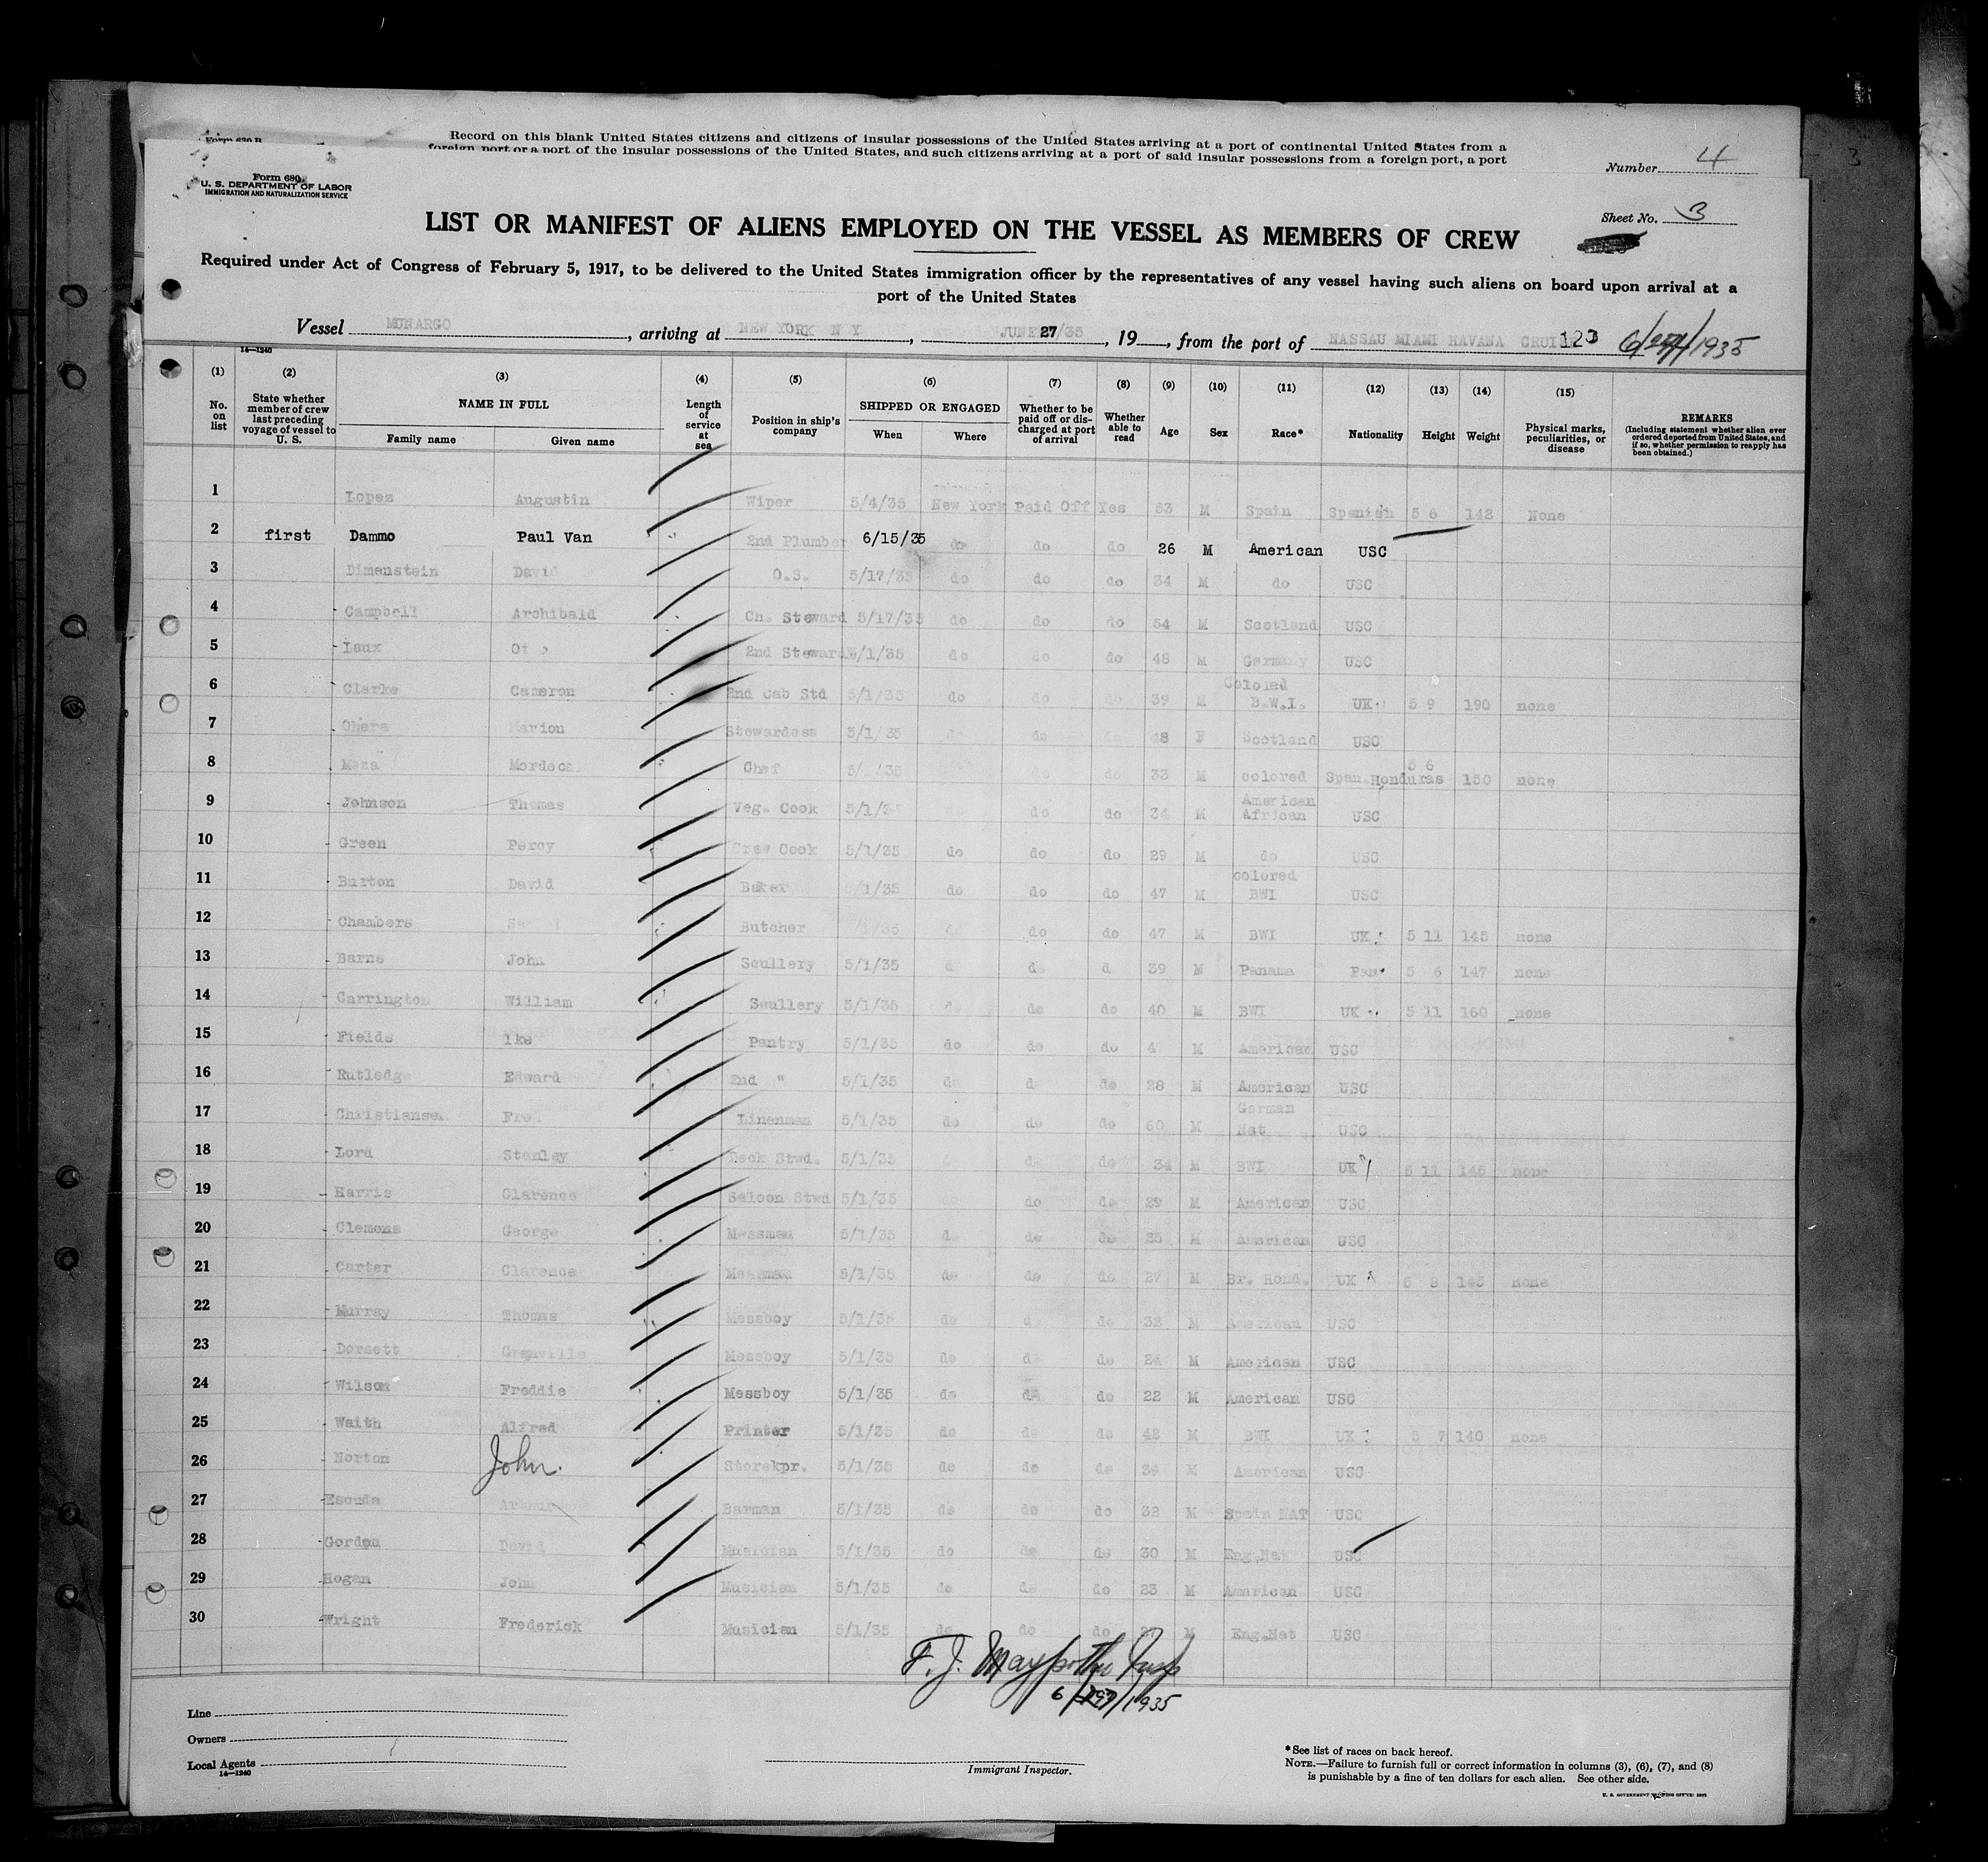 Form 630 B
Record on this blank United States citizens and citizens of insular possessions of the United States arriving at a port of continental United States from a
foreign port or a port of the insular possessions of the United States, and such citizens arriving at a port of said insular possessions from a foreign port, a port
Number 4
3
Form 680
U. S. DEPARTMENT OF LABOR
IMMIGRATION AND NATURALIZATION SERVICE
Sheet No. 3
LIST OR MANIFEST OF ALIENS EMPLOYED ON THE VESSEL AS MEMBERS OF CREW
Required under Act of Congress of February 5, 1917, to be delivered to the United States immigration officer by the representatives of any vessel having such aliens on board upon arrival at a
port of the United States
Vessel MUNARGO, arriving at NEW YORK N Y, JUNE 27/35, 19, from the port of NASSAU MIAMI HAVANA 6/27/1935
14—1240
(1) (2) (3) (4) (5) (6) (7) (8) (9) (10) (11) (12) (13) (14) (15)
No. on list State whether member of crew last preceding voyage of vessel to U. S. NAME IN FULL Family name Given name Length of service at sea Position in ship's company SHIPPED OR ENGAGED When Where Whether to be paid off or discharged at port of arrival Whether able to read Age Sex Race* Nationality Height Weight Physical marks, peculiarities, or disease REMARKS
(Including statement whether alien ever ordered deported from United States, and if so, whether permission to reapply has been obtained.)
1 Lopez Augustin Wiper 5/4/35 New York Paid Off Yes 53 M Spain Spanish 5 6 142 None
2 first Dammo Paul Van 2nd Plumber 6/15/35 do do do 26 M American USC
3 Dimenstein David O.S. 5/17/35 do do do 34 M do USC
4 Campbell Archibald Ch. Steward 5/17/35 do do do 54 M Scotland USC
5 Laux Otto 2nd Steward 5/1/35 do do do 48 M Germany USC
6 Clarke Cameron 2nd Cab Std 5/1/35 do do do 39 M Colored B.W.I. UK 5 9 190 none
7 Ohara Marion Stewardess 5/1/35 do 48 F Scotland USC
8 Meza Chef 5/1/35 do do 33 M colored Span. Honduras 5 6 150 none
9 Johnson Thomas Veg. Cook 5/1/35 do do 34 M American African USC
10 Green Percy Crew Cook 5/1/35 do do do 29 M do USC
11 Burton David Baker 5/1/35 do do do 47 M colored BWI USC
12 Chambers Butcher do do 47 M BWI UK 5 11 145 none
13 Barns John Scullery 5/1/35 do 39 M Panama Pan 5 6 147 none
14 Carrington William Scullery 5/1/35 do do do 40 M BWI UK 5 11 160 none
15 Fields Ike Pantry 5/1/35 do do do M American USC
16 Rutledge Edward 2nd " 5/1/35 do do 28 M American USC
17 Christiansen Fred Linenman 5/1/35 do do do 60 M German Nat USC
18 Lord Stanley Deck Stwd. 5/1/35 do do 34 M BWI UK 5 11 145 none
19 Harris Clarence Saloon Stwd 5/1/35 do do 29 M American USC
20 Clemons George Messman 5/1/35 do do do 25 M American USC
21 Carter Clarence Messman 5/1/35 do do do 27 M Br. Hond. UK 5 8 145 none
22 Murray Thomas Messboy 5/1/35 do do do 32 M American USC
23 Dorsett Granville Messboy 5/1/35 do do do 24 M American USC
24 Wilson Freddie Messboy 5/1/35 do do do 22 M American USC
25 Waith Alfred Printer 5/1/35 do do do 42 M BWI UK 5 7 140 none
26 Norton John. Storekpr. 5/1/35 do do do 39 M American USC
27 Escuda Arthur Barman 5/1/35 do do do 32 M Spain NAT USC
28 Gordon David Musician 5/1/35 do do do 30 M Eng.Nat USC
29 Hogan John Musician 5/1/35 do do do 23 M American USC
30 Wright Frederick Musician 5/1/35 do do do 27 M Eng.Nat USC
F. J.
1935
Line
Owners
Local Agents
14—1240
Immigrant Inspector.
*See list of races on back hereof.
NOTE.—Failure to furnish full or correct information in columns (3), (6), (7), and (8)
is punishable by a fine of ten dollars for each alien. See other side.